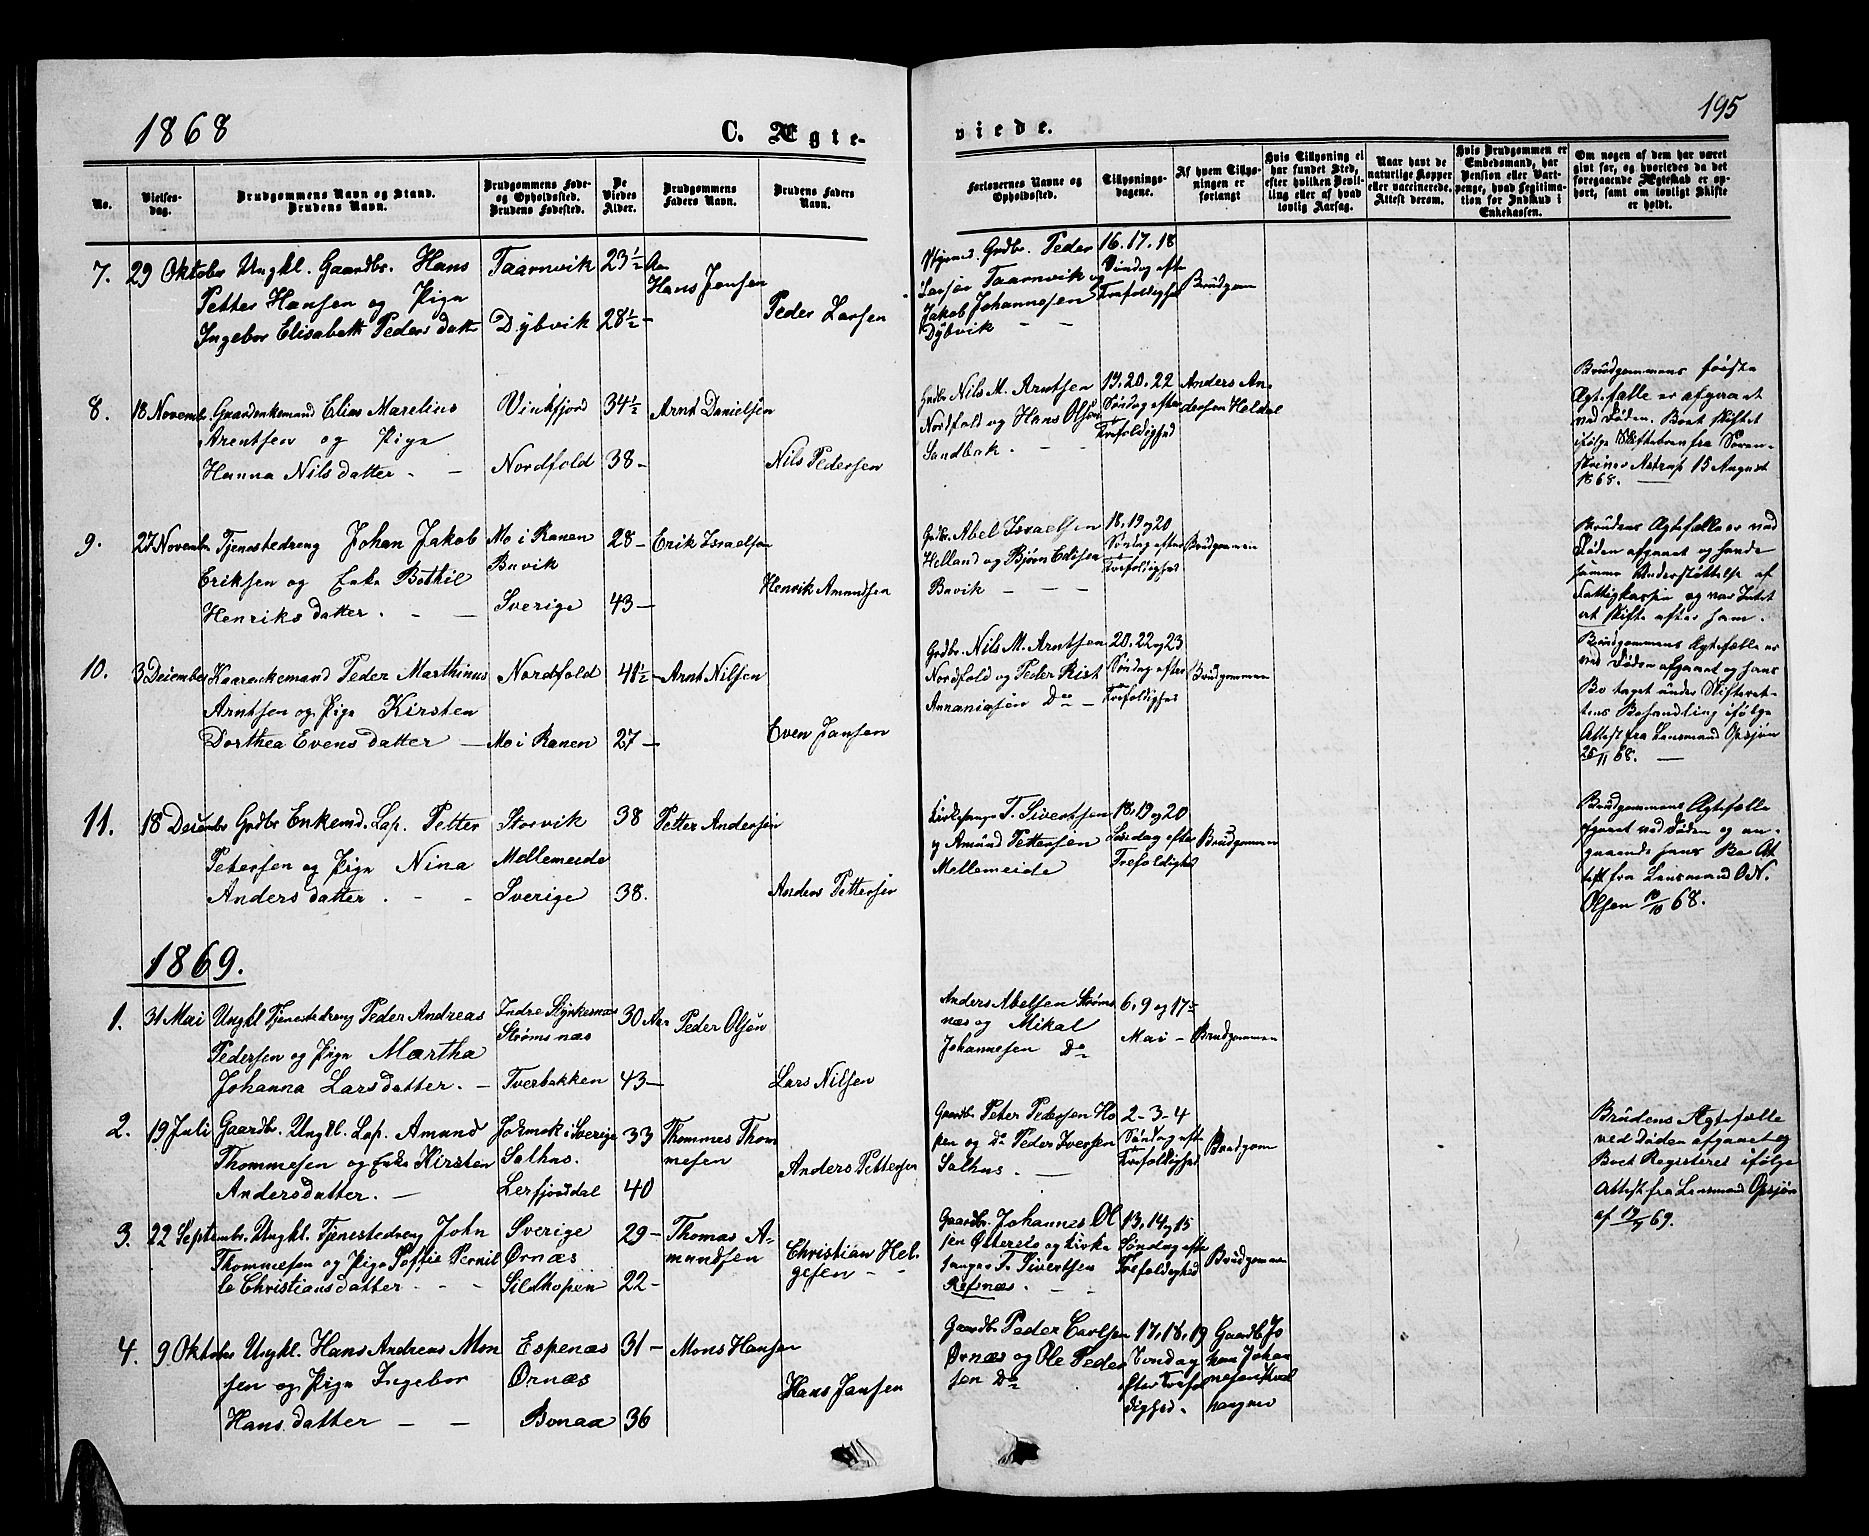 1868
C. Ægte-
No.
Vielses-
dag.
Brudgommens Navn og Stand.
Brudens Navn.
Brudgommens Føde-
og Opholdssted.
Brudens Fødested.
De
Viedes
Alder.
Brudgommens
Faders Navn.
Brudens Faders
Navn.
7. 29 Oktober Ungkl. Gaardbr. Hans Taarnvik 23½ Aar Hans Jensen
Petter Hansen og Pige
Ingebor Elisabeth Peders datter Dybvik 28½ - Peder Larsen
8. 18 Novemb. Gaardenkemand Elias Marelius Vinkfjord 34½ Arnt Danielsen
Arentsen og Pige
Hanna Nilsdatter. - Nordfold 38 - Nils Pedersen
9. 27 Novembr Tjenestedreng Johan Jakob Mo i Ranen 28 - Erik Israelsen
Eriksen og Enke Bothil Buvik Henrik Amundsen
Henriksdatter. - - Sverige 43 -
10. 3 December Peder Marthinus Nordfold 41½ - Arnt Nilsen
Arntsen og Pige Kirsten
Dorthea Evensdatter - Mo i Ranen 27 - Even Jansen
11. 18 December Grdbr Enkemd. Lap. Petter Storvik 38 Petter Andersen
Petersen og Pige Nina Mellemeide
Andersdatter. - - Sverige 38. Anders Pettersen
1869.
1. 31 Mai Ungkl Tjenestedreng Peder Andreas Indre Styrkesnæs 30 Aar Peder Olsen
Pedersen og Pige Martha Strømsnæs
Johanna Larsdatter. - Tverbakken 43 - Lars Nilsen
2. 19 Juli Gaardbr. Ungkl. Lap. Amund Jokmok i Sverige 33 Thommes Thom
Thommesen og Enke Kirsten Salhus. mesen Anders Pettersen
Andersdatter. - Lerfjorddal 40
3. 22 Septembr. Ungkl. Tjenestedreng John Sverige 29 - Thomas A-
Thommesen og Pige Soffie Pernil Ørnæs mundsen Christian Hel-
le Christiansdatter - - Sildhopen 22 - gesen - -
4. 9 Oktober Ungkl. Hans Andreas Mon Espenæs 31 - Mons Hansen
sen og Pige Ingebor Ørnæs Hans Jansen
Hansdatter - - Bonaa 36
195
viede.
Forlovernes Navne og
Opholdssted.
Tillysnings-
dagene.
Af hvem Tillys-
ningen er
forlangt
Hvis Tillysning ei
har fundet Sted,
efter hvilken Bevil-
ling eller af hvad
lovlig Aarsag.
Naar havt de
naturlige Kopper
eller vaccinerede.
Attest derom.
Hvis Brudgommen er
Embedsmand, har
Pension eller Vart-
penge, hvad Legitima-
tion for Indskud i
Enkekassen.
Om nogen af dem har været
gift før, og hvorledes da det
foregaaende Ægteskab er op-
hørt, samt om lovligt Skifte
er holdt.
Grdbr. Peder 16. 17. 18
Larsen Taarnvik og Søndag efter Brudgom
Jakob Johannesen Trefoldighed
Dybvik - -
Grdbr Nils M. Arntsen 19. 20. 22 Anders An-
Nordfold og Hans Olsen Søndag efter dersen Heldal
Sandbak. - - Trefoldighed
Brudgommens første
Ægtefælle er afgaaet
ved Døden. Boet skiftet
ifølge Skiftebrev fra Soren-
skriver Astrup 15 August
1868. -
Grdbr. Abel Israelsen 18, 19 og 20
Helland og Bjørn Edisen Søndag efter Brudgommen
Buvik - - - Trefoldighed
Brudens Ægtefælle er ved
Døden afgaaet og havde
samme Understøttelse af
Fattigkassen og var Intet
at skifte efter ham.
Grdbr. Nils M. Arntsen 20. 22 og 23
Nordfold og Peder Rist Søndag efter Brudgommen
Annaniasen Do - Trefoldighed
Brudgommens Ægtefælle er
ved Døden afgaaet og hans
Bo taget under Skifteret-
tens Behandling ifølge
Attest fra Lensmand Opsjøn
25/11 68. -
Kirkesanger T. Sivertsen 18, 19 og 20
og Amund Pettersen Søndag efter Brudgommen
Mellemeide Trefoldighed
Brudgommens Ægtefælle
afgaaet ved Døden og an-
gaaende hans Bo At
test fra Lensmand O. N.
Olsen 10/10 68.
Anders Abelsen Strøms 6, 9 og 17de
næs og Mikal Mai - Brudgommen
Johannesen Do
Gaardbr Peter Pedersen Ho 2 - 3 - 4
pen og Do Peder Iversen Søndag efter Brudgom
Salhus. - Trefoldighed
Brudens Ægtefælle
ved Døden afgaaet og
Boet Registeret ifølge
Attest fra Lensmand Opsjøn
af 69.
Gaardbr. Johannes Ol 13, 14 og 15
sen Otterels og Kirke Søndag efter Brudgommen
sanger T. Sivertsen Trefoldighed
Røsnæs. - -
Gaardbr Peder Carlsen 17, 18, 19 Gaardb. Jo
Ørnæs og Ole Peder Søndag han Johan
sen Do efter Trefol nesen
dighed.